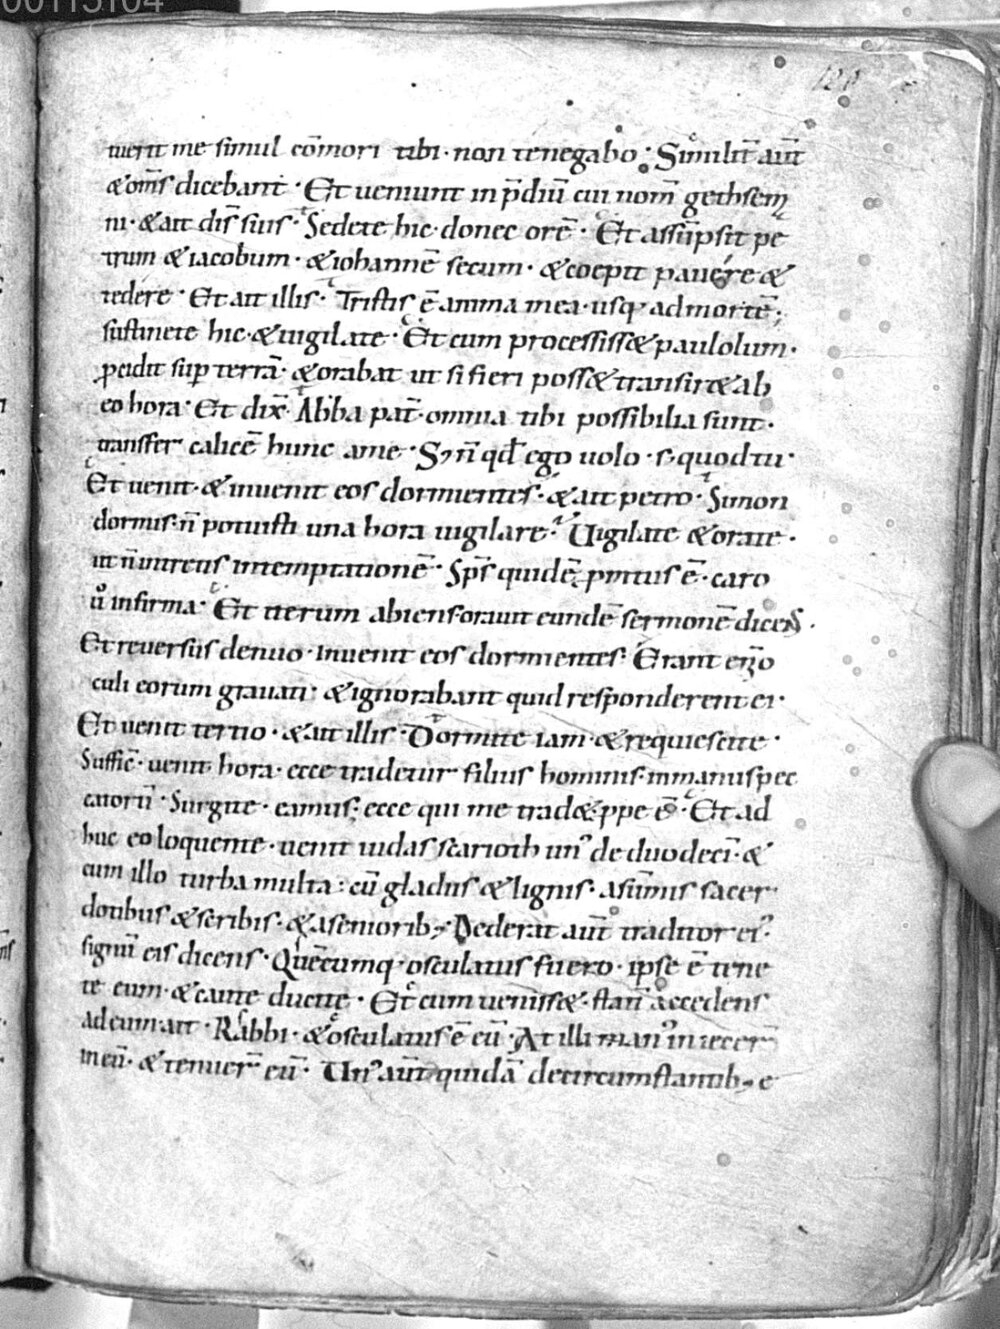 00115104
121
uerit me simul cōmori tibi · non te negabo · Similit̄ aut̄
& om̄s dicebant · Et ueniunt in p̄diū cui nom̄ gethsem
ni · & ait dis̄ suis · Sedete hic donec orē · Et assūpsit pe
trum & iacobum · & iohannē secum · & coepit pauere &
tedere · Et ait illis · Tristis ē anima mea usq; ad mortē ;
sustinete hic · & uigilate · Et cum processiss& paululum ·
ꝓcidit sup terrā · & orabat ut si fieri poss& transir& ab
eo hora · Et dix̄ · Abba pat̄ · omnia tibi possibilia sunt ·
transfer calicē hunc a me · S; n̄ qd̄ ego uolo · s; quod tu ·
Et uenit · & inuenit eos dormientes · & ait petro · Simon
dormis · n̄ potuisti una hora uigilare · Uigilate & orate ·
ut n̄ intretis in temptationē · Sp̄s quidē ꝓmtus ē · caro
u̇ infirma · Et iterum abiens orauit eundē sermonē dicens ·
Et reuersus denuo inuenit eos dormientes · Erant eni͞ o
culi eorum grauati · & ignorabant quid responderent ei ·
Et uenit tertio · & ait illis · Dormite iam · & requiescite ·
Suffic̄ · uenit hora · ecce tradetur filius hominis · in manus pec
catorū · Surgite · eamus · ecce qui me trad& ꝓpe ē · Et ad
huc eo loquente · uenit iudas scarioth un᾽ de duodeci̅ · &
cum illo turba multa · cū gladiis & lignis · a sūmis sacer
dotibus & scribis · & a seniorib; · Dederat aut̄ traditor ei᾽
signū eis dicens · Quēcumq; osculatus fuero · ipse ē tene
te eum · & caute ducite · Et cum ueniss& · stati̅ accedens
ad eum ait · Rabbi · & osculatus ē eū · At illi man᾽ iniecer̄
in eū · & tenuer̄ eū · Un᾽ aut̄ quidā de circumstantib; e